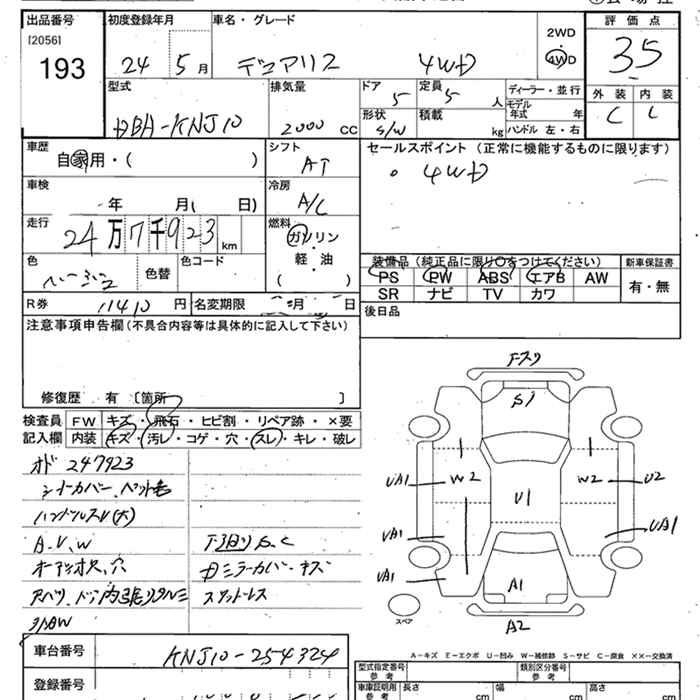 出品番号 初度登録年月 車名・グレード 評価点
[2056]
193
24 5月 デュアリス 4WD
2WD
4WD
3.5
型式 排気量 ドア 定員 ディーラー・並行 外装 内装
DBA-KNJ10 2000 cc 5 5 人 モデル年式 年 C C
形状 積載 kg ハンドル 左・右
S/W
車歴 シフト セールスポイント (正常に機能するものに限ります)
自家用・( ) AT ・4WD
車検 冷房
年 月( 日) A/C
走行 燃料
24万7千923km ガソリン・軽・油
( )
色 色替 色コード
装備品(純正品に限り〇をつけてください) 新車保証書
PS PW ABS エアB AW 有・無
SR ナビ TV カワ
R券 11410 円 名変期限 月 日
後日品
注意事項申告欄(不具合内容等は具体的に記入して下さい)
修復歴 有 〔箇所 〕
検査員 FW キズ・飛石・ヒビ割・リペア跡・×要
記入欄 内装 キズ・汚レ・コゲ・穴・スレ・キレ・破レ
オド 247923
シートカバー、ペット毛
ハンドルスレ(大)
A.V.W 下廻りS.C
ミラーカバーキズ
スペアレス
F-スリ
S1
W2 W2
UA1 U2
U1
UA1 UA1
UA1
A1
A2
スペア
A－キズ E－エクボ U－凹み W－補修跡 S－サビ C－腐食 ××－交換済
車台番号 KNJ10-254324
登録番号
型式指定番号 参考 類別区分番号 参考
車庫証明用 参考 長さ cm 幅 cm 高さ cm